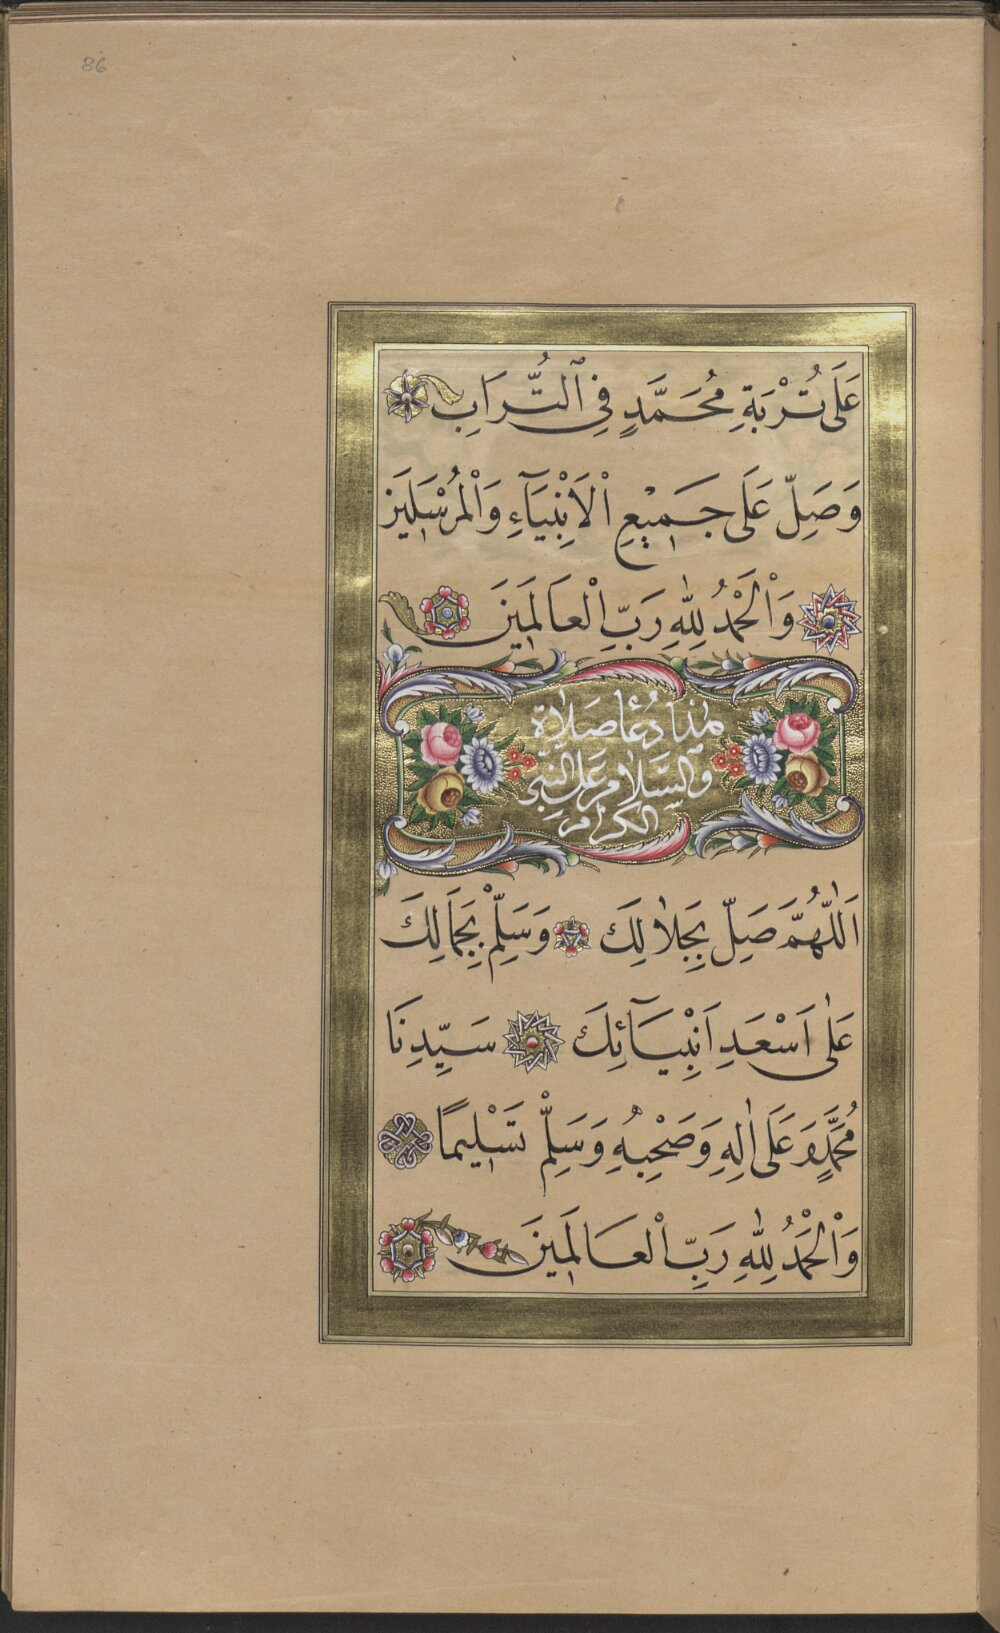 86
عَلَى تُرْبَةِ مُحَمَّدٍ فِى ٱلتُّرَابِ
وَصَلِّ عَلَى جَمِيْعِ اْلاَنْبِيَآءِ وَاْلمُرْسَلِينَ
وَاْلحَمْدُ لِلّٰهِ رَبِّ اْلعَالَمِينَ
هٰذَا دُعَا صَلَاة
والسَّلَام عَلَى النَّبِى
الكرام
اَللّٰهُمَّ صَلِّ بِجَلاٰلِكَ وَسَلِّمْ بِجَمَالِكَ
عَلٰى اَسْعَدِ اَنْبِيَآئِكَ سَيِّدِنَا
مُحَمَّدٍ وَعَلَى اٰلِهِ وَصَحْبِهِ وَسَلِّمْ تَسْلِيمًا
وَاْلحَمْدُ لِلّٰهِ رَبِّ اْلعَالَمِينَ